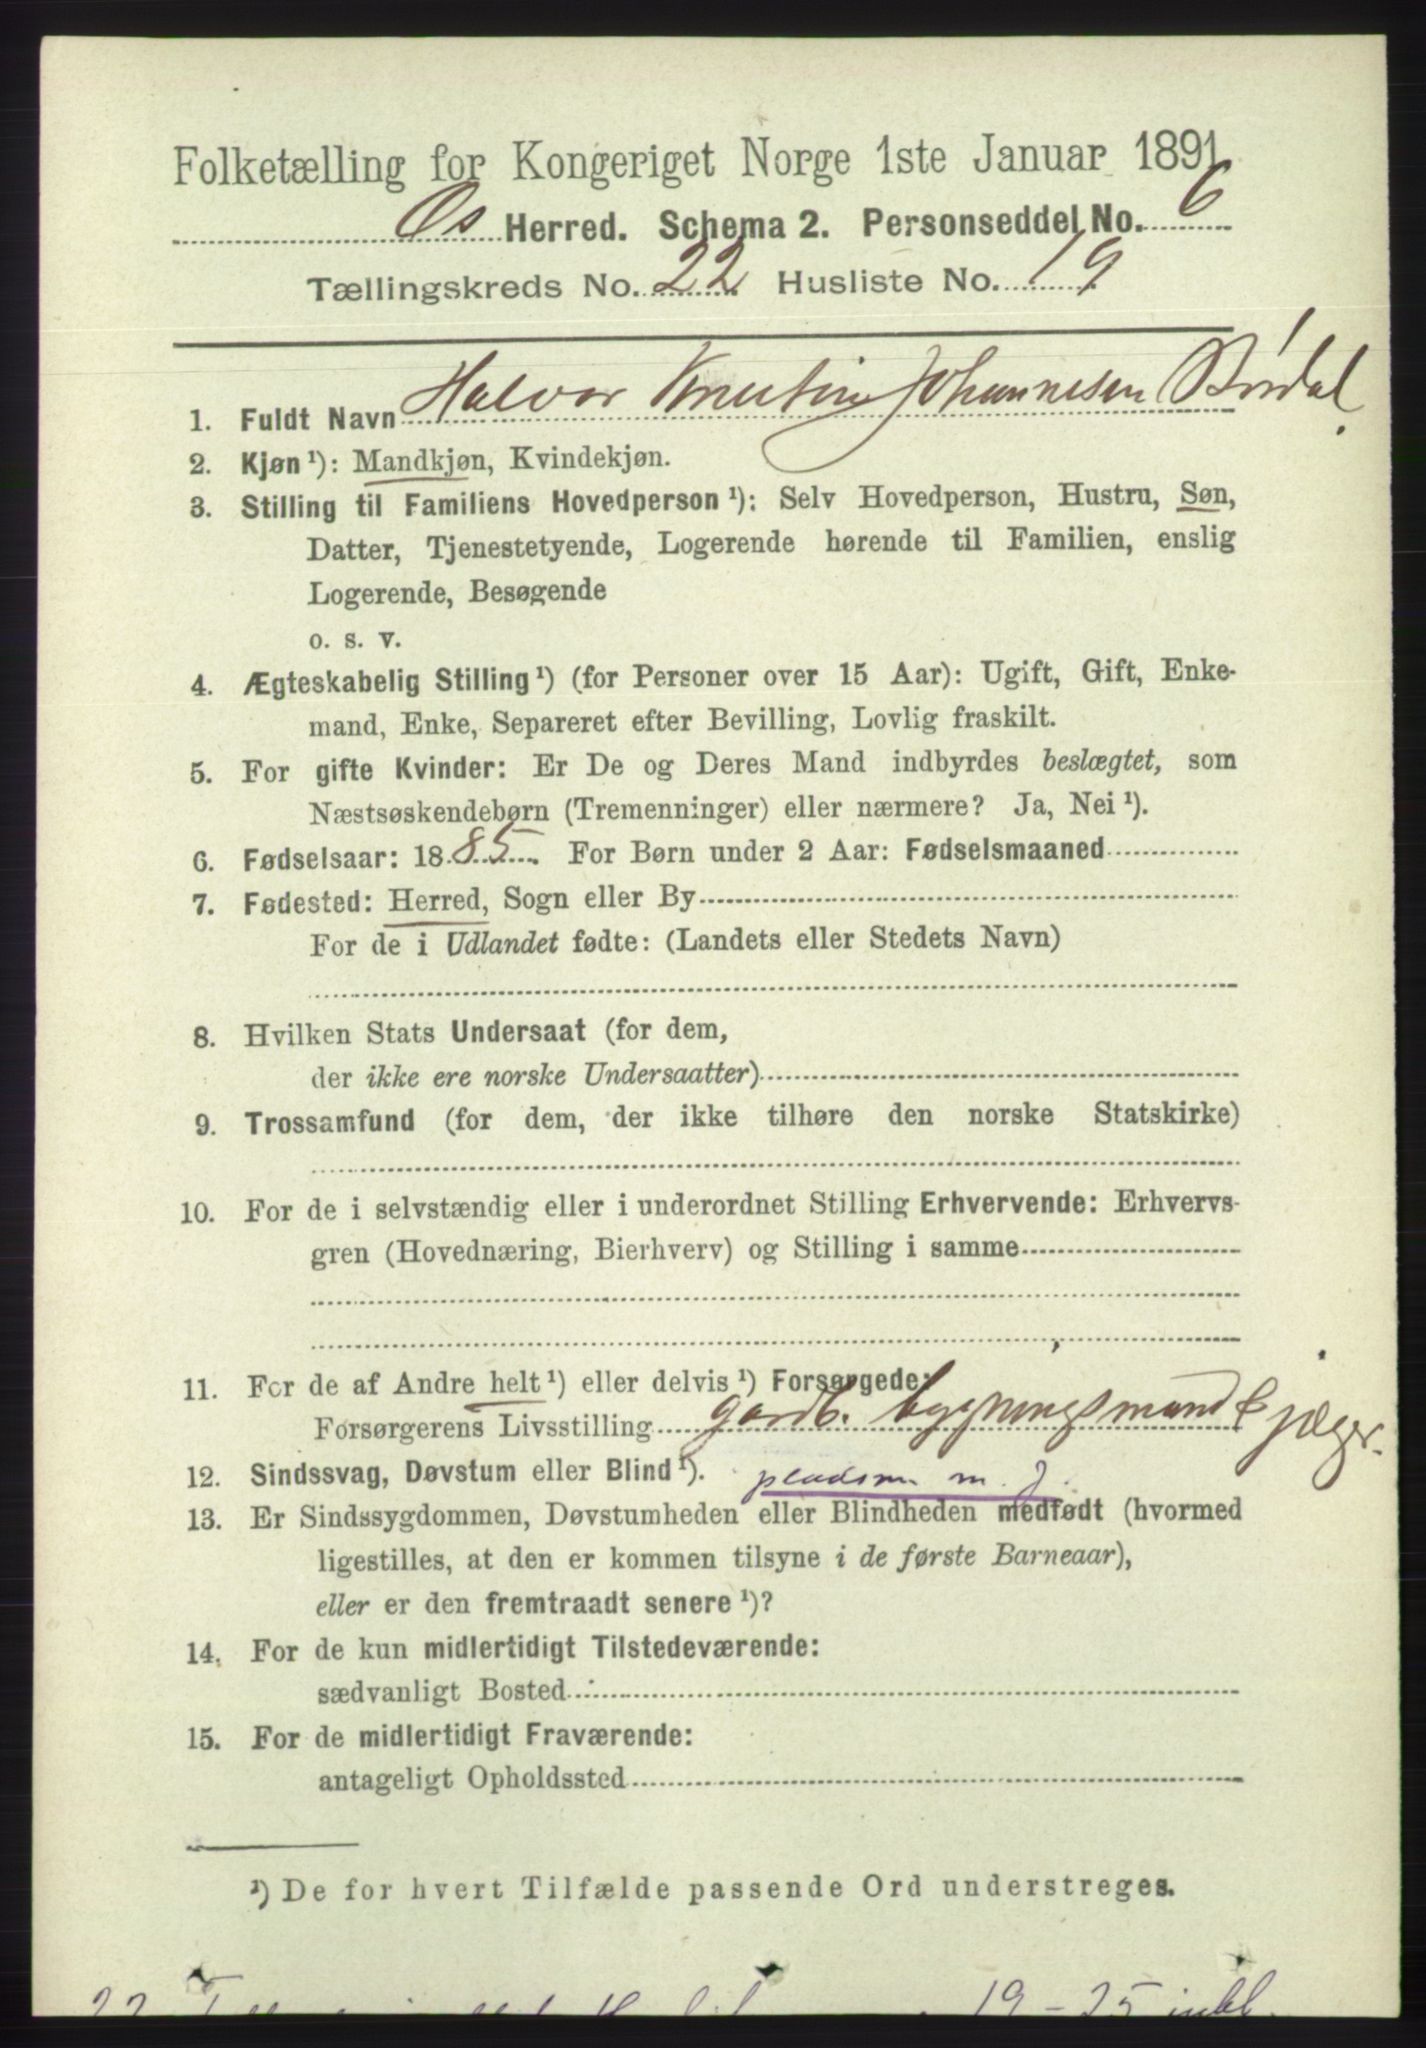 Folketælling for Kongeriget Norge 1ste Januar 1891.
Os Herred. Schema 2. Personseddel No. 6
Tællingskreds No. 22 Husliste No. 19
1. Fuldt Navn Halvor Johannesen
2. Kjøn ¹): Mandkjøn, Kvindekjøn.
3. Stilling til Familiens Hovedperson ¹): Selv Hovedperson, Hustru, Søn,
Datter, Tjenestetyende, Logerende hørende til Familien, enslig
Logerende, Besøgende
o. s. v.
4. Ægteskabelig Stilling ¹) (for Personer over 15 Aar): Ugift, Gift, Enke-
mand, Enke, Separeret efter Bevilling, Lovlig fraskilt.
5. For gifte Kvinder: Er De og Deres Mand indbyrdes beslægtet, som
Næstsøskendebørn (Tremenninger) eller nærmere? Ja, Nei ¹).
6. Fødselsaar: 1885. For Børn under 2 Aar: Fødselsmaaned
7. Fødested: Herred, Sogn eller By
For de i Udlandet fødte: (Landets eller Stedets Navn)
8. Hvilken Stats Undersaat (for dem,
der ikke ere norske Undersaatter)
9. Trossamfund (for dem, der ikke tilhøre den norske Statskirke)
10. For de i selvstændig eller i underordnet Stilling Erhvervende: Erhvervs-
gren (Hovednæring, Bierhverv) og Stilling i samme
11. For de af Andre helt ¹) eller delvis ¹) Forsørgede:
Forsørgerens Livsstilling gardb. bygningsmand & jæger.
12. Sindssvag, Døvstum eller Blind ¹). pladsm m. j.
13. Er Sindssygdommen, Døvstumheden eller Blindheden medfødt (hvormed
ligestilles, at den er kommen tilsyne i de første Barneaar),
eller er den fremtraadt senere ¹)?
14. For de kun midlertidigt Tilstedeværende:
sædvanligt Bosted
15. For de midlertidigt Fraværende:
antageligt Opholdssted
¹) De for hvert Tilfælde passende Ord understreges.
19 - 25 inkl.